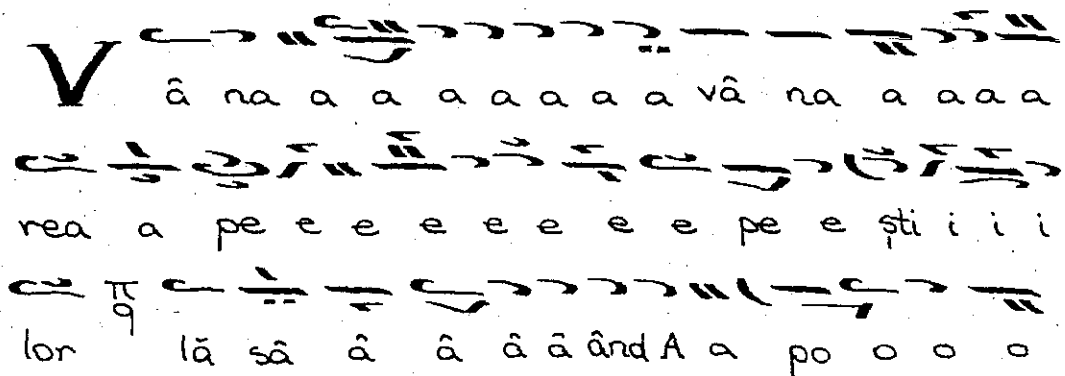 V â na a a a a a a a vâ na a a a a
rea a pe e e e e e e e pe e ști i i i
lor π q lă sâ â â â â ând A a po o o o